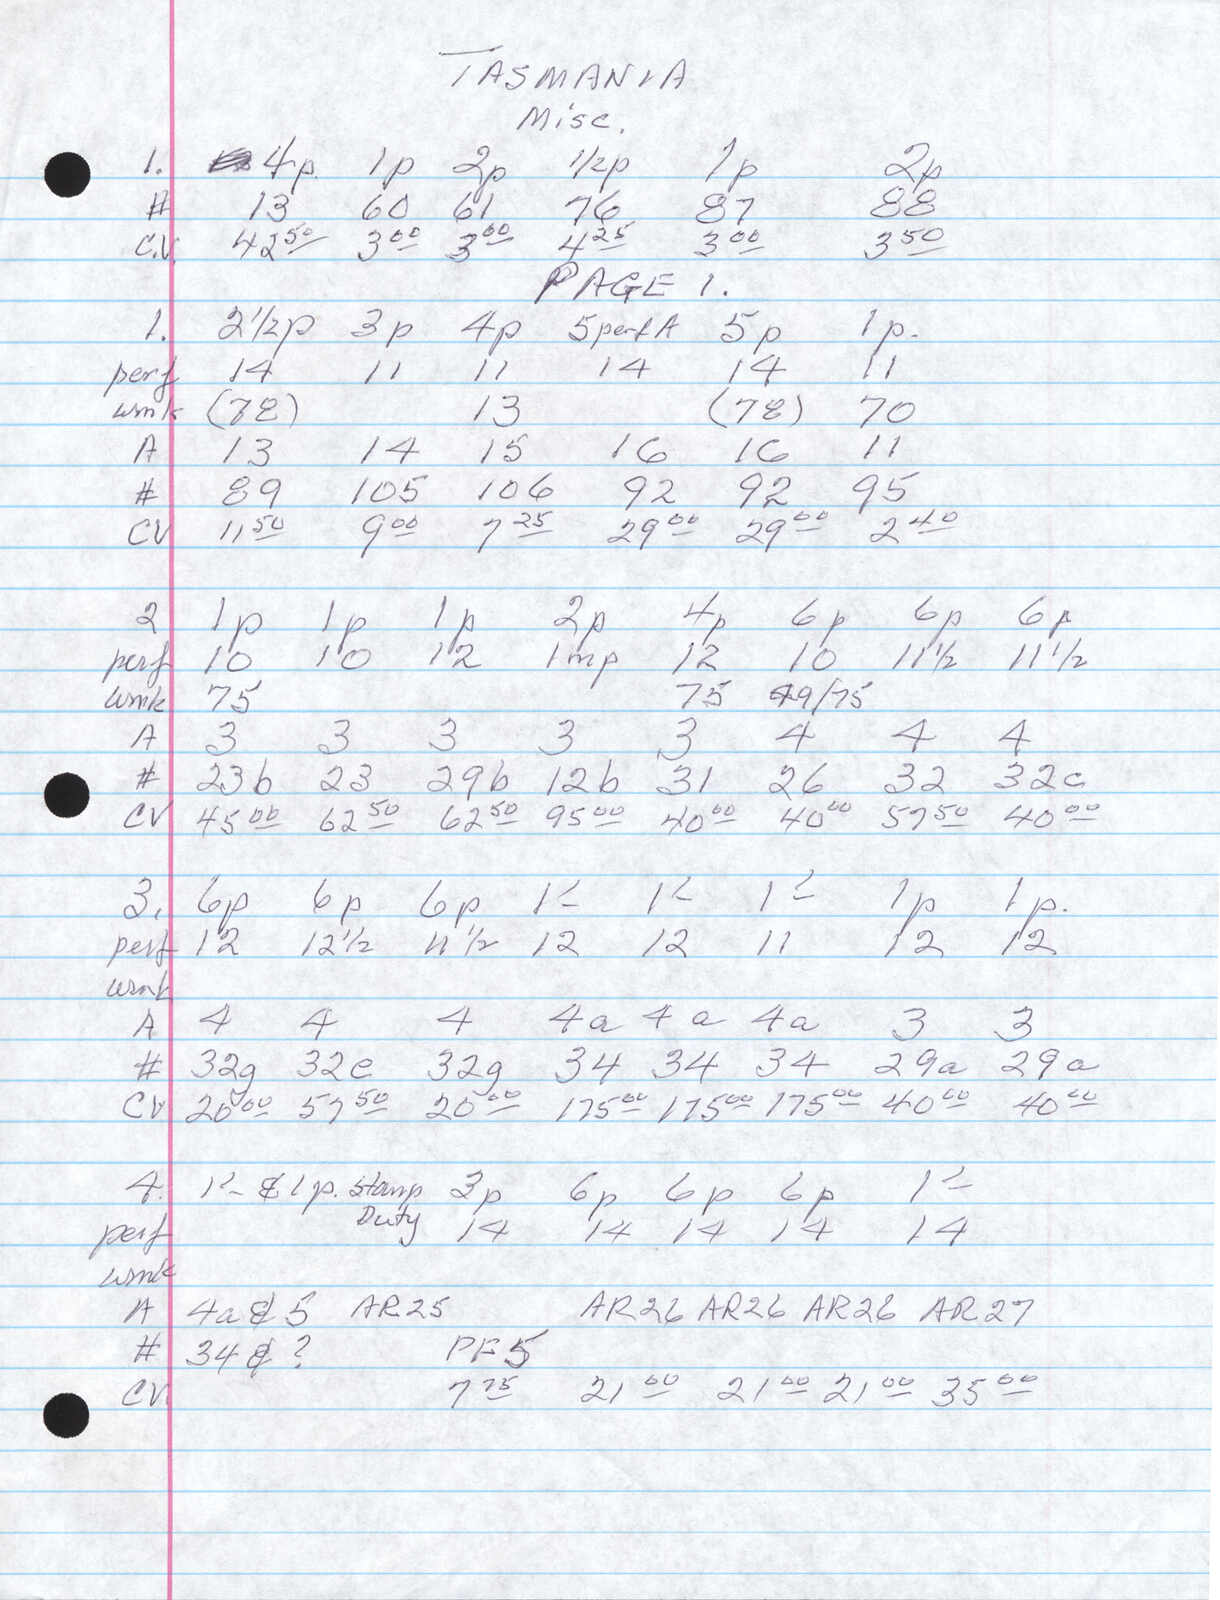 TASMANIA
Misc.
1. 4p. 1p 2p 1/2p 1p 2p
# 13 60 61 76 87 88
C.V. 42 50 3 00 3 00 4 25 3 00 3 50
PAGE 1.
1. 2 1/2p 3p 4p 5perf A 5p 1p.
perf 14 11 11 14 14 11
wmk (78) 13 (78) 70
A 13 14 15 16 16 11
# 89 105 106 92 92 95
CV 11 50 9 00 7 25 29 00 29 00 2 40
2 1p 1p 1p 2p 4p 6p 6p 6p
perf 10 10 12 imp 12 10 11 1/2 11 1/2
wmk 75 75 49/75
A 3 3 3 3 3 4 4 4
# 23b 23 29b 12b 31 26 32 32c
CV 45 00 62 50 62 50 95 00 40 00 40 00 57 50 40 00
3. 6p 6p 6p 1/- 1/- 1/- 1p 1p.
perf 12 12 1/2 11 1/2 12 12 11 12 12
wmk
A 4 4 4 4a 4a 4a 3 3
# 32g 32e 32g 34 34 34 29a 29a
CV 20 00 57 50 20 00 175 00 175 00 175 00 40 00 40 00
4. 1/- & 1p. Stamp 3p 6p 6p 6p 1/-
perf Duty 14 14 14 14 14
wmk
A 4a & 5 AR25 AR26 AR26 AR26 AR27
# 34 & ? PF5
CV 7 75 21 00 21 00 21 00 35 00